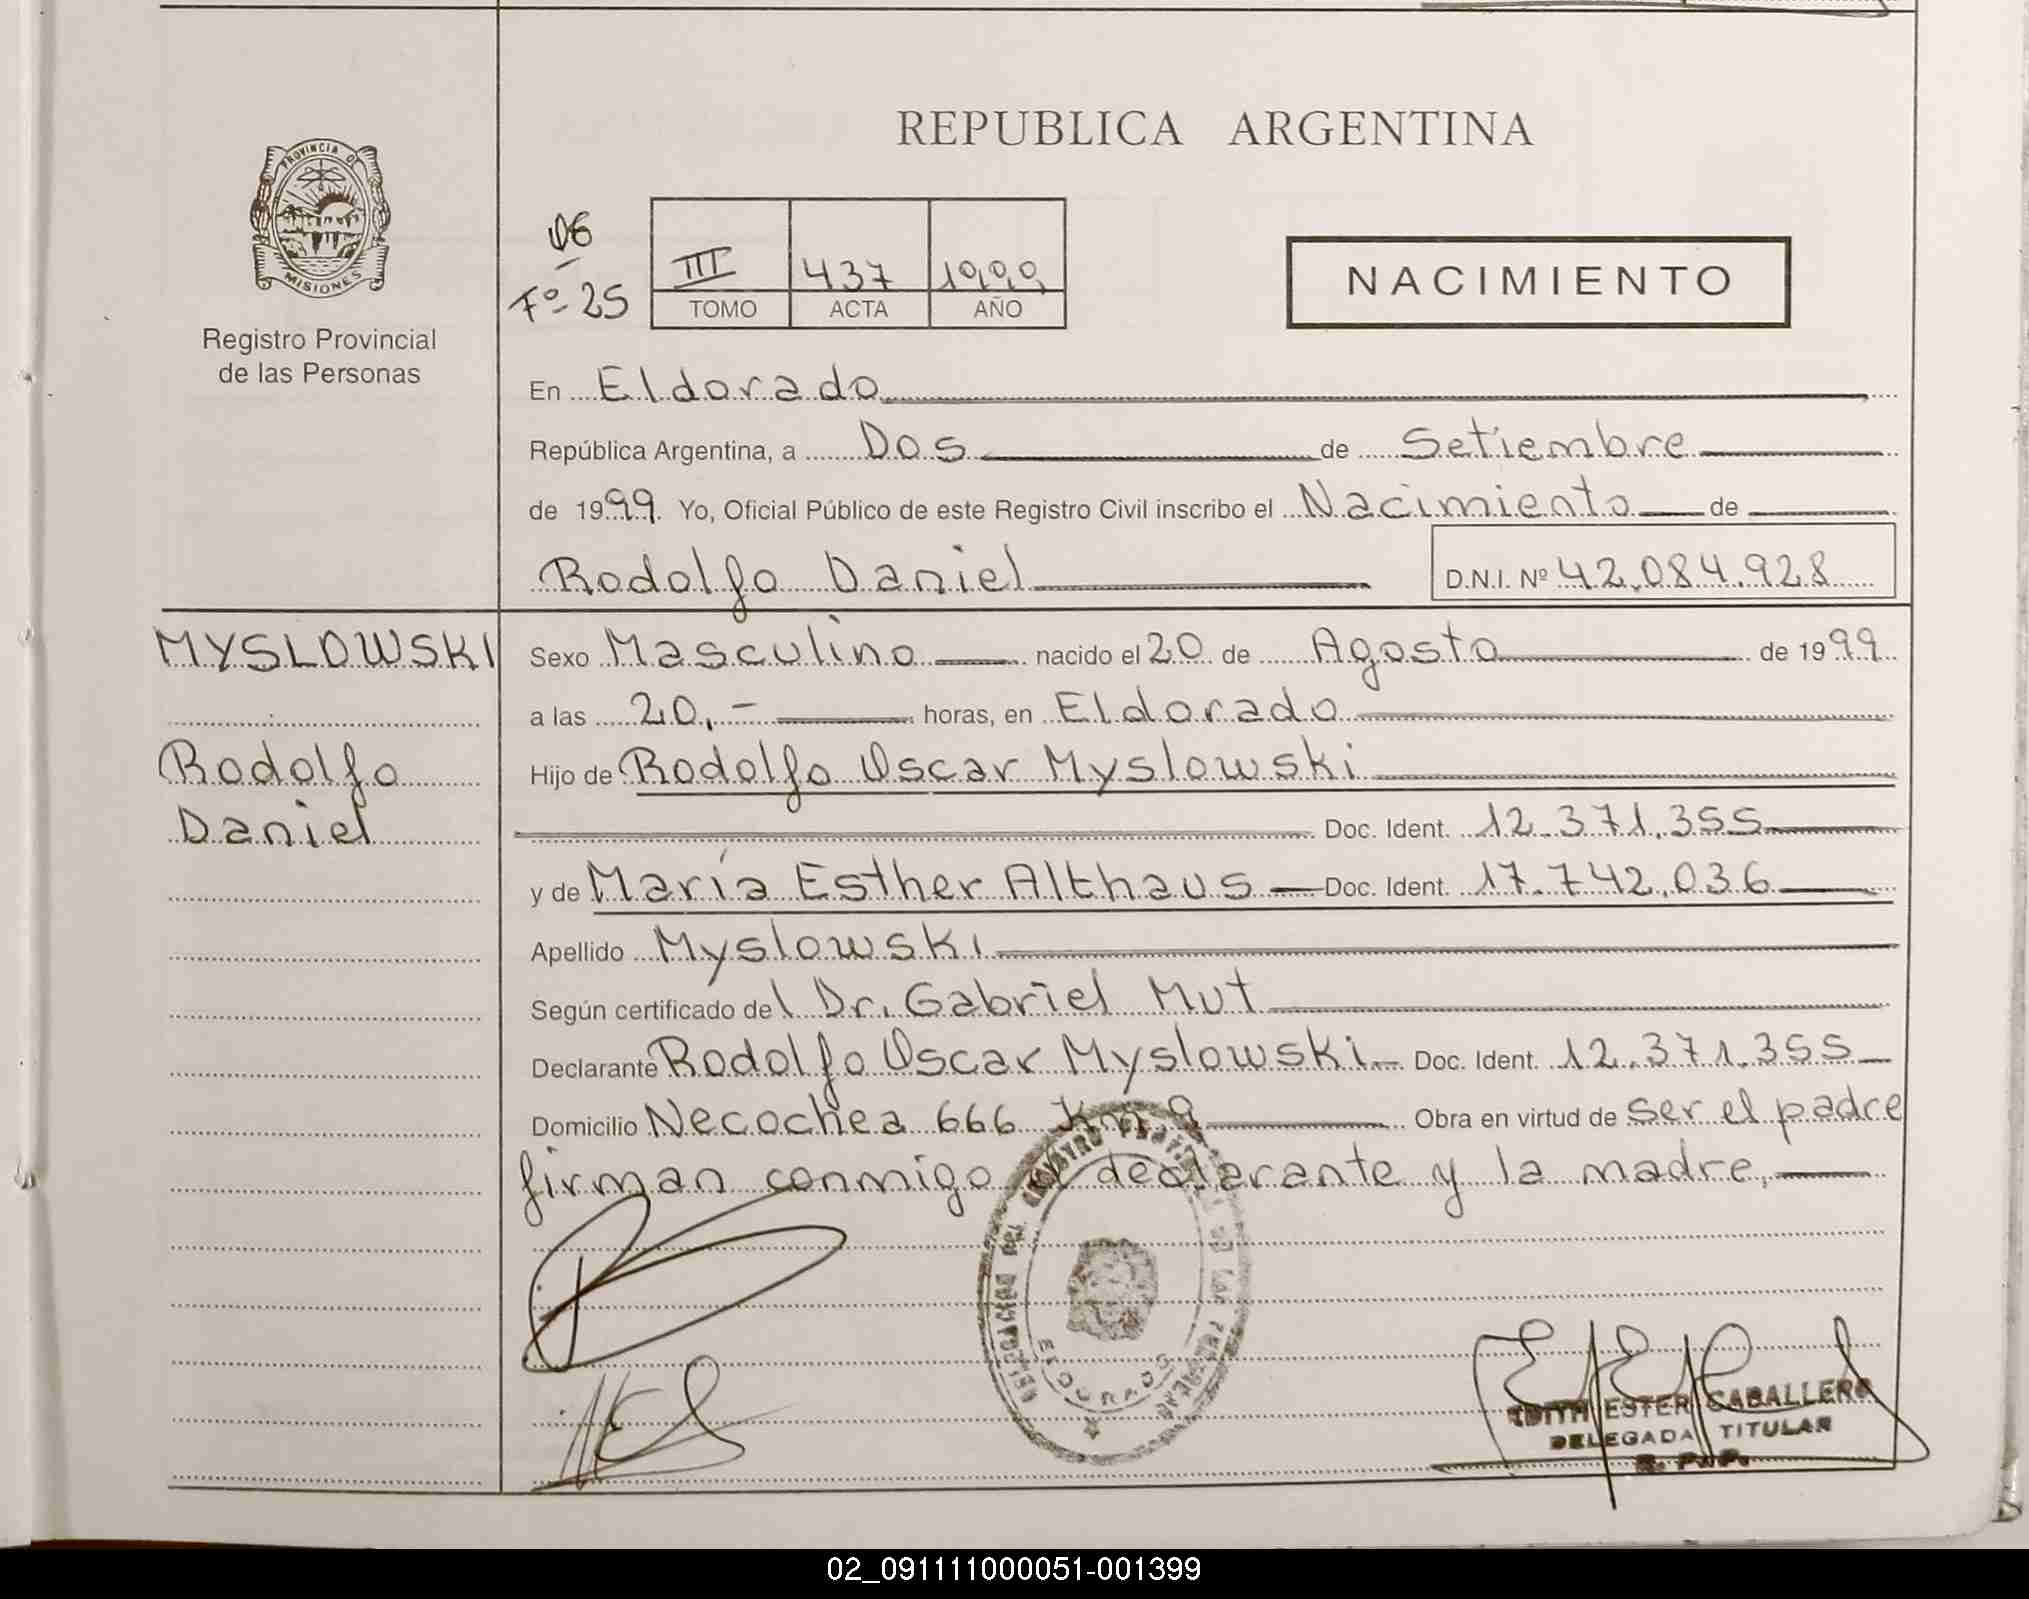 REPUBLICA ARGENTINA
PROVINCIA DE
MISIONES
Registro Provincial
de las Personas
06
Fº 25
III 437 1999
TOMO ACTA AÑO
NACIMIENTO
En Eldorado
República Argentina, a Dos de Setiembre
de 1999. Yo, Oficial Público de este Registro Civil inscribo el Nacimiento de
Rodolfo Daniel D.N.I. Nº 42.084.928
MYSLOWSKI
Rodolfo
Daniel
Sexo Masculino nacido el 20 de Agosto de 1999
a las 20.- horas, en Eldorado
Hijo de Rodolfo Oscar Myslowski
Doc. Ident. 12.371.355
y de María Esther Althaus Doc. Ident. 17.742.036
Apellido Myslowski
Según certificado del Dr. Gabriel Mut
Declarante Rodolfo Oscar Myslowski Doc. Ident. 12.371.355
Domicilio Necochea 666 Km 9 Obra en virtud de ser el padre
firman conmigo el declarante y la madre.
DELEGACION DEL REGISTRO PROV. DE LAS PERSONAS
ELDORADO
EDITH ESTER CABALLERO
DELEGADA TITULAR
R. P. P.
02_091111000051-001399